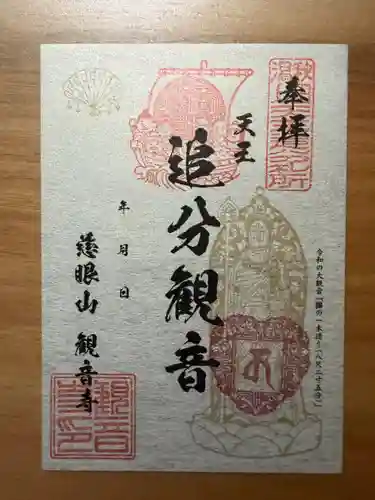 奉拝
天王
追分観音
年 月 日
慈眼山 観音寺
令和の大観音「楠の一木造り(八尺二寸五分)」